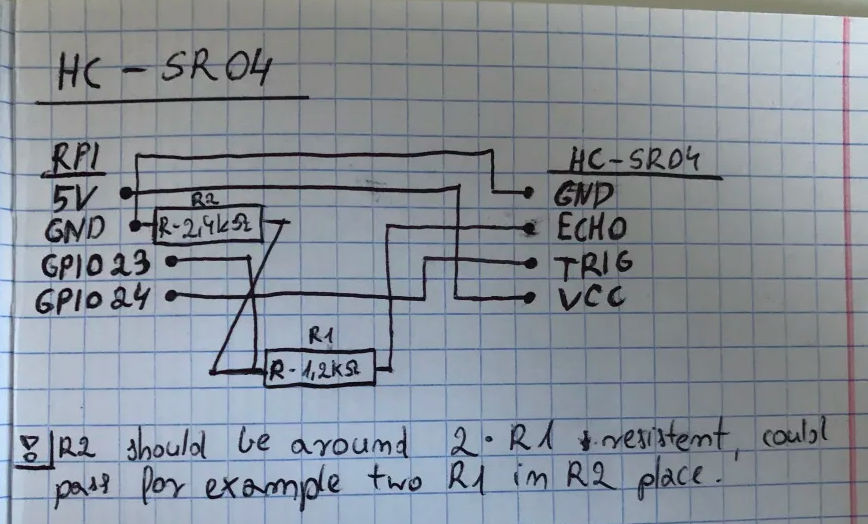 HC - SR04
RPI
5V
GND
GPIO 23
GPIO 24
R2
R-2,4kΩ
R1
R-1,2kΩ
HC-SR04
GND
ECHO
TRIG
VCC
R2 should be around 2 · R1 resistent, could
pass for example two R1 in R2 place.